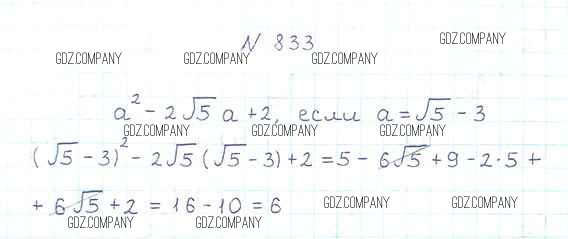 N 833
GDZ.COMPANY
GDZ.COMPANY GDZ.COMPANY GDZ.COMPANY
a² - 2√5 a + 2, если a = √5 - 3
GDZ.COMPANY GDZ.COMPANY GDZ.COMPANY
(√5 - 3)² - 2√5 (√5 - 3) + 2 = 5 - 6√5 + 9 - 2·5 +
+ 6√5 + 2 = 16 - 10 = 6
GDZ.COMPANY GDZ.COMPANY
GDZ.COMPANY GDZ.COMPANY